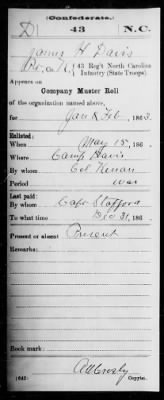 (Confederate.)
D 43 N.C.
James H Davis
Pvt, Co. A, 43 Reg't North Carolina
Infantry (State Troops).
Appears on
Company Muster Roll
of the organization named above,
for Jan & Feb, 1863.
Enlisted:
When May 15, 186
Where Camp Davis
By whom Col Kenan
Period war
Last paid:
By whom Capt Stafford
To what time Dec 31, 186
Present or absent Present
Remarks:
Book mark:
(642) Copyist.